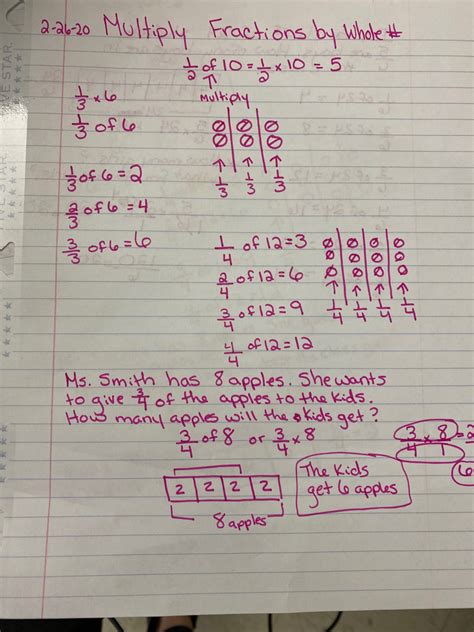 2-26-20 Multiply Fractions by Whole #
1/2 of 10 = 1/2 x 10 = 5
↑
Multiply
1/3 x 6
1/3 of 6
1/3 of 6 = 2
2/3 of 6 = 4
3/3 of 6 = 6
↑ ↑ ↑
1/3 1/3 1/3
1/4 of 12 = 3
2/4 of 12 = 6
3/4 of 12 = 9
4/4 of 12 = 12
↑ ↑ ↑ ↑
1/4 1/4 1/4 1/4
Ms. Smith has 8 apples. She wants
to give 3/4 of the apples to the kids.
How many apples will the kids get?
3/4 of 8 or 3/4 x 8
3/4 x 8/1 = 2
6
2 2 2 2
8 apples
The kids
get 6 apples